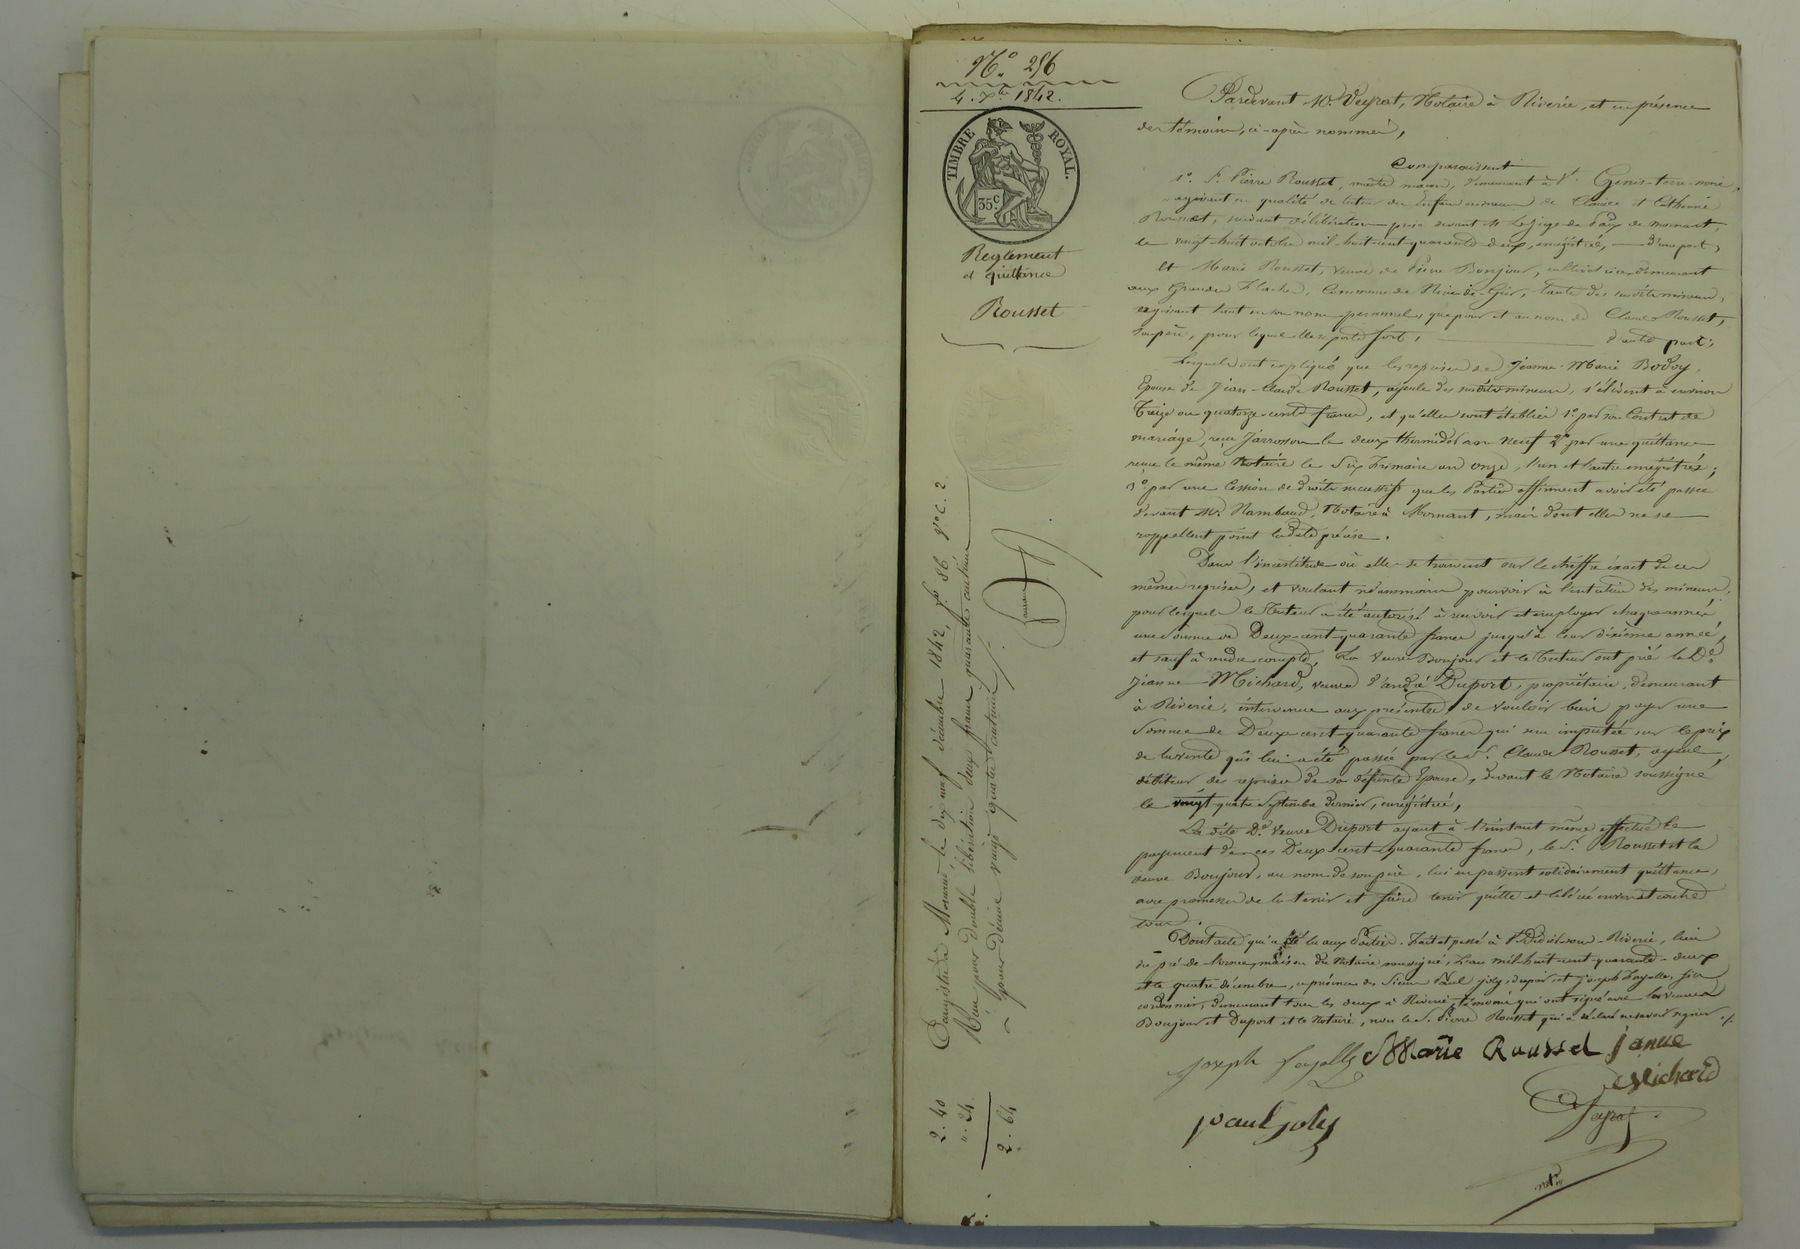 N.° 256
4. Xbre 1842.
TIMBRE ROYAL.
35 c.
Reglement
et quittance
Rousset
Pardevant Me. Veyrat, Notaire à Riverie, et en présence
des témoins, ci-après nommés,
Comparaissent
1°. Sr. Pierre Rousset, maître maçon, demeurant à St. Genis-terre-noire,
agissant en qualité de tuteur des enfans mineurs de Claude et Catherine
Rousset, suivant délibération prise devant Mr le juge de Paix de Mornant,
le vingt-huit octobre mil-huit-cent-quarante-deux, enregistrée, d'une part,
Et Marie Rousset, veuve de Pierre Bonjour, cultivatrice, demeurant
aux Grandes Flaches, Commune de Rive-de-Gier, tante des susdits mineurs,
agissant tant en son nom personnel, que pour et au nom de Claude Rousset,
son père, pour lequel elle se porte fort, d'autre part;
Lesquels ont expliqué que les reprises de Jeanne-Marie Bodoy,
Epouse de Jean-Claude Rousset, ayeule des susdits mineurs, s'élèvent à environ
Treize ou quatorze-cents francs, et qu'elles sont établies 1° par son Contrat de
mariage, reçu Jarrosson le deux thermidor an neuf 2° par une quittance
reçue le même Notaire le Six frimaire an onze, l'un et l'autre enregistrés;
3° par une Cession de droits successifs que les Parties affirment avoir été passée
devant Me. Rambaud, Notaire à Mornant, mais dont elles ne se
rappellent point la date précise.
Dans l'incertitude où elles se trouvent sur le chiffre exact de ces
mêmes reprises, et voulant néanmoins pourvoir à l'entretien des mineurs,
pour lesquels le Tuteur a été autorisé à recevoir et employer chaque année
une somme de Deux-cent-quarante francs jusqu'à leur dixième année,
et sauf à rendre compte, La veuve Bonjour et le Tuteur ont prié la De.
Jeanne Michard, veuve d'andré Duport, propriétaire, demeurant
à Riverie, intervenue aux présentes, de vouloir bien payer une
Somme de Deux-cent-quarante francs qui sera imputée sur le prix
de la vente qui lui a été passée par le Sr. Claude Rousset, ayeul,
débiteur des reprises de sa défunte Epouse, devant le Notaire soussigné
le vingt-quatre Septembre dernier, enregistrée,
La dite De. veuve Duport ayant à l'instant même effectué le
payement de ces Deux-cent-quarante francs, le Sr. Rousset et la
veuve Bonjour, au nom de son père, lui en passent solidairement quittance,
avec promesse de la tenir et faire tenir quitte et libérée envers et contre
tous.
Dont acte qui a été lu aux Parties. Fait et passé à St. Didier-sous-Riverie, lieu
du pré-de-l'orme, maison du Notaire soussigné, L'an mil-huit-cent-quarante-deux
et le quatre décembre, en présence des Sieurs Paul joly, et joseph fayolle,
cordonnier, demeurant tous les deux à Riverie, témoins qui ont signé avec les veuves
Bonjour et Duport et le Notaire, non le Sr. Pierre Rousset qui a déclaré ne savoir signer ./.
joseph fayolle Marie Roussel janne
Michard
paul joly
Veyrat
notre
Enregistré à Mornant le dix neuf décembre 1842, fo. 86 Vo c. 2
Reçu pour double libération deux francs quarante centimes
pour décime vingt quatre centimes
2. 40
". 24
2. 64